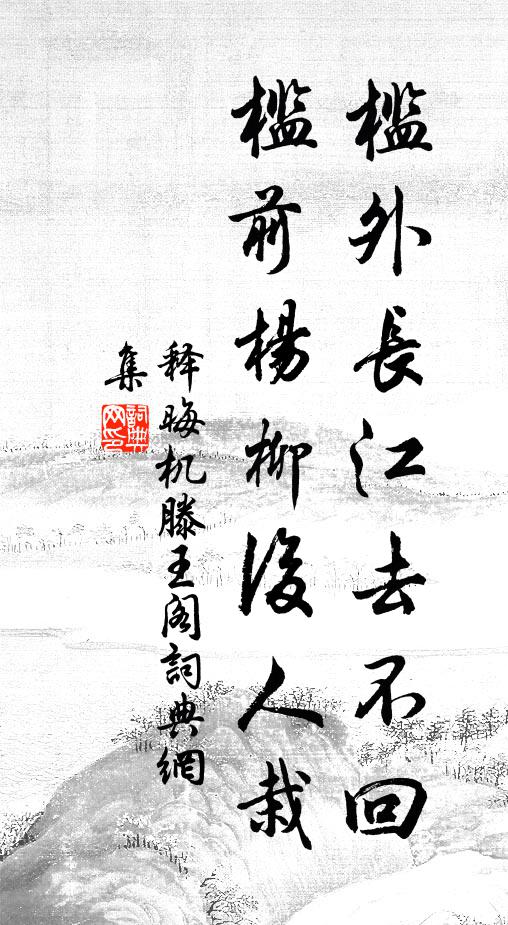 檻外長江去不回
檻前楊柳後人栽
释晦机滕王阁詞典網
集
詞典
网印